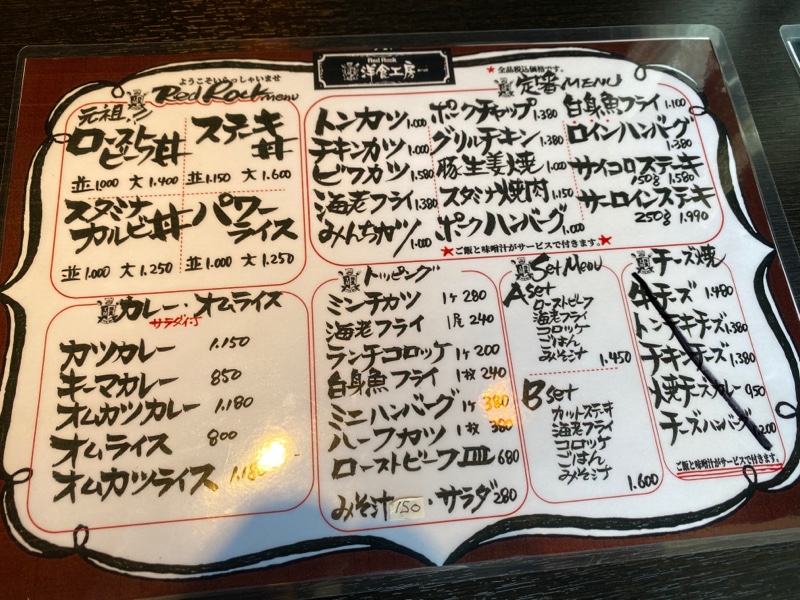 Red Rock
洋食工房
ようこそいらっしゃいませ
Red Rock menu
元祖!!
ローストビーフ丼
並1000 大1.400
ステーキ丼
並1.150 大1.600
スタミナカルビ丼
並1.000 大1.250
パワーライス
並1.000 大1.250
★全品税込価格です。
定番MENU
トンカツ 1.000
チキンカツ 1.000
ビフカツ 1.580
海老フライ 1.380
みんちカツ 1.000
ポークチャップ 1.380
グリルチキン 1.380
豚生姜焼 1.000
スタミナ焼肉 1.150
ポークハンバーグ 1.000
白身魚フライ 1.100
ロインハンバーグ 1.380
サイコロステーキ
150g 1.580
サーロインステーキ
250g 1.990
★ご飯と味噌汁がサービスで付きます。★
カレー・オムライス
サラダ付
カツカレー 1.150
キーマカレー 850
オムカツカレー 1.180
オムライス 800
オムカツライス
トッピング
ミンチカツ 1ケ 280
海老フライ 1尾 240
ランチコロッケ 1ケ 200
白身魚フライ 1枚 240
ミニハンバーグ 1ケ 380
ハーフカツ 1枚 380
ローストビーフ皿 680
みそ汁 150・サラダ 280
Set Menu
A set
ローストビーフ
海老フライ
コロッケ
ごはん
みそ汁
1.450
B set
カットステーキ
海老フライ
コロッケ
ごはん
みそ汁
1.600
チーズ焼
牛チーズ 1.480
トンチキチーズ 1.380
チキンチーズ 1.380
焼チーズカレー 950
チーズハンバーグ 1.200
ご飯と味噌汁がサービスで付きます。